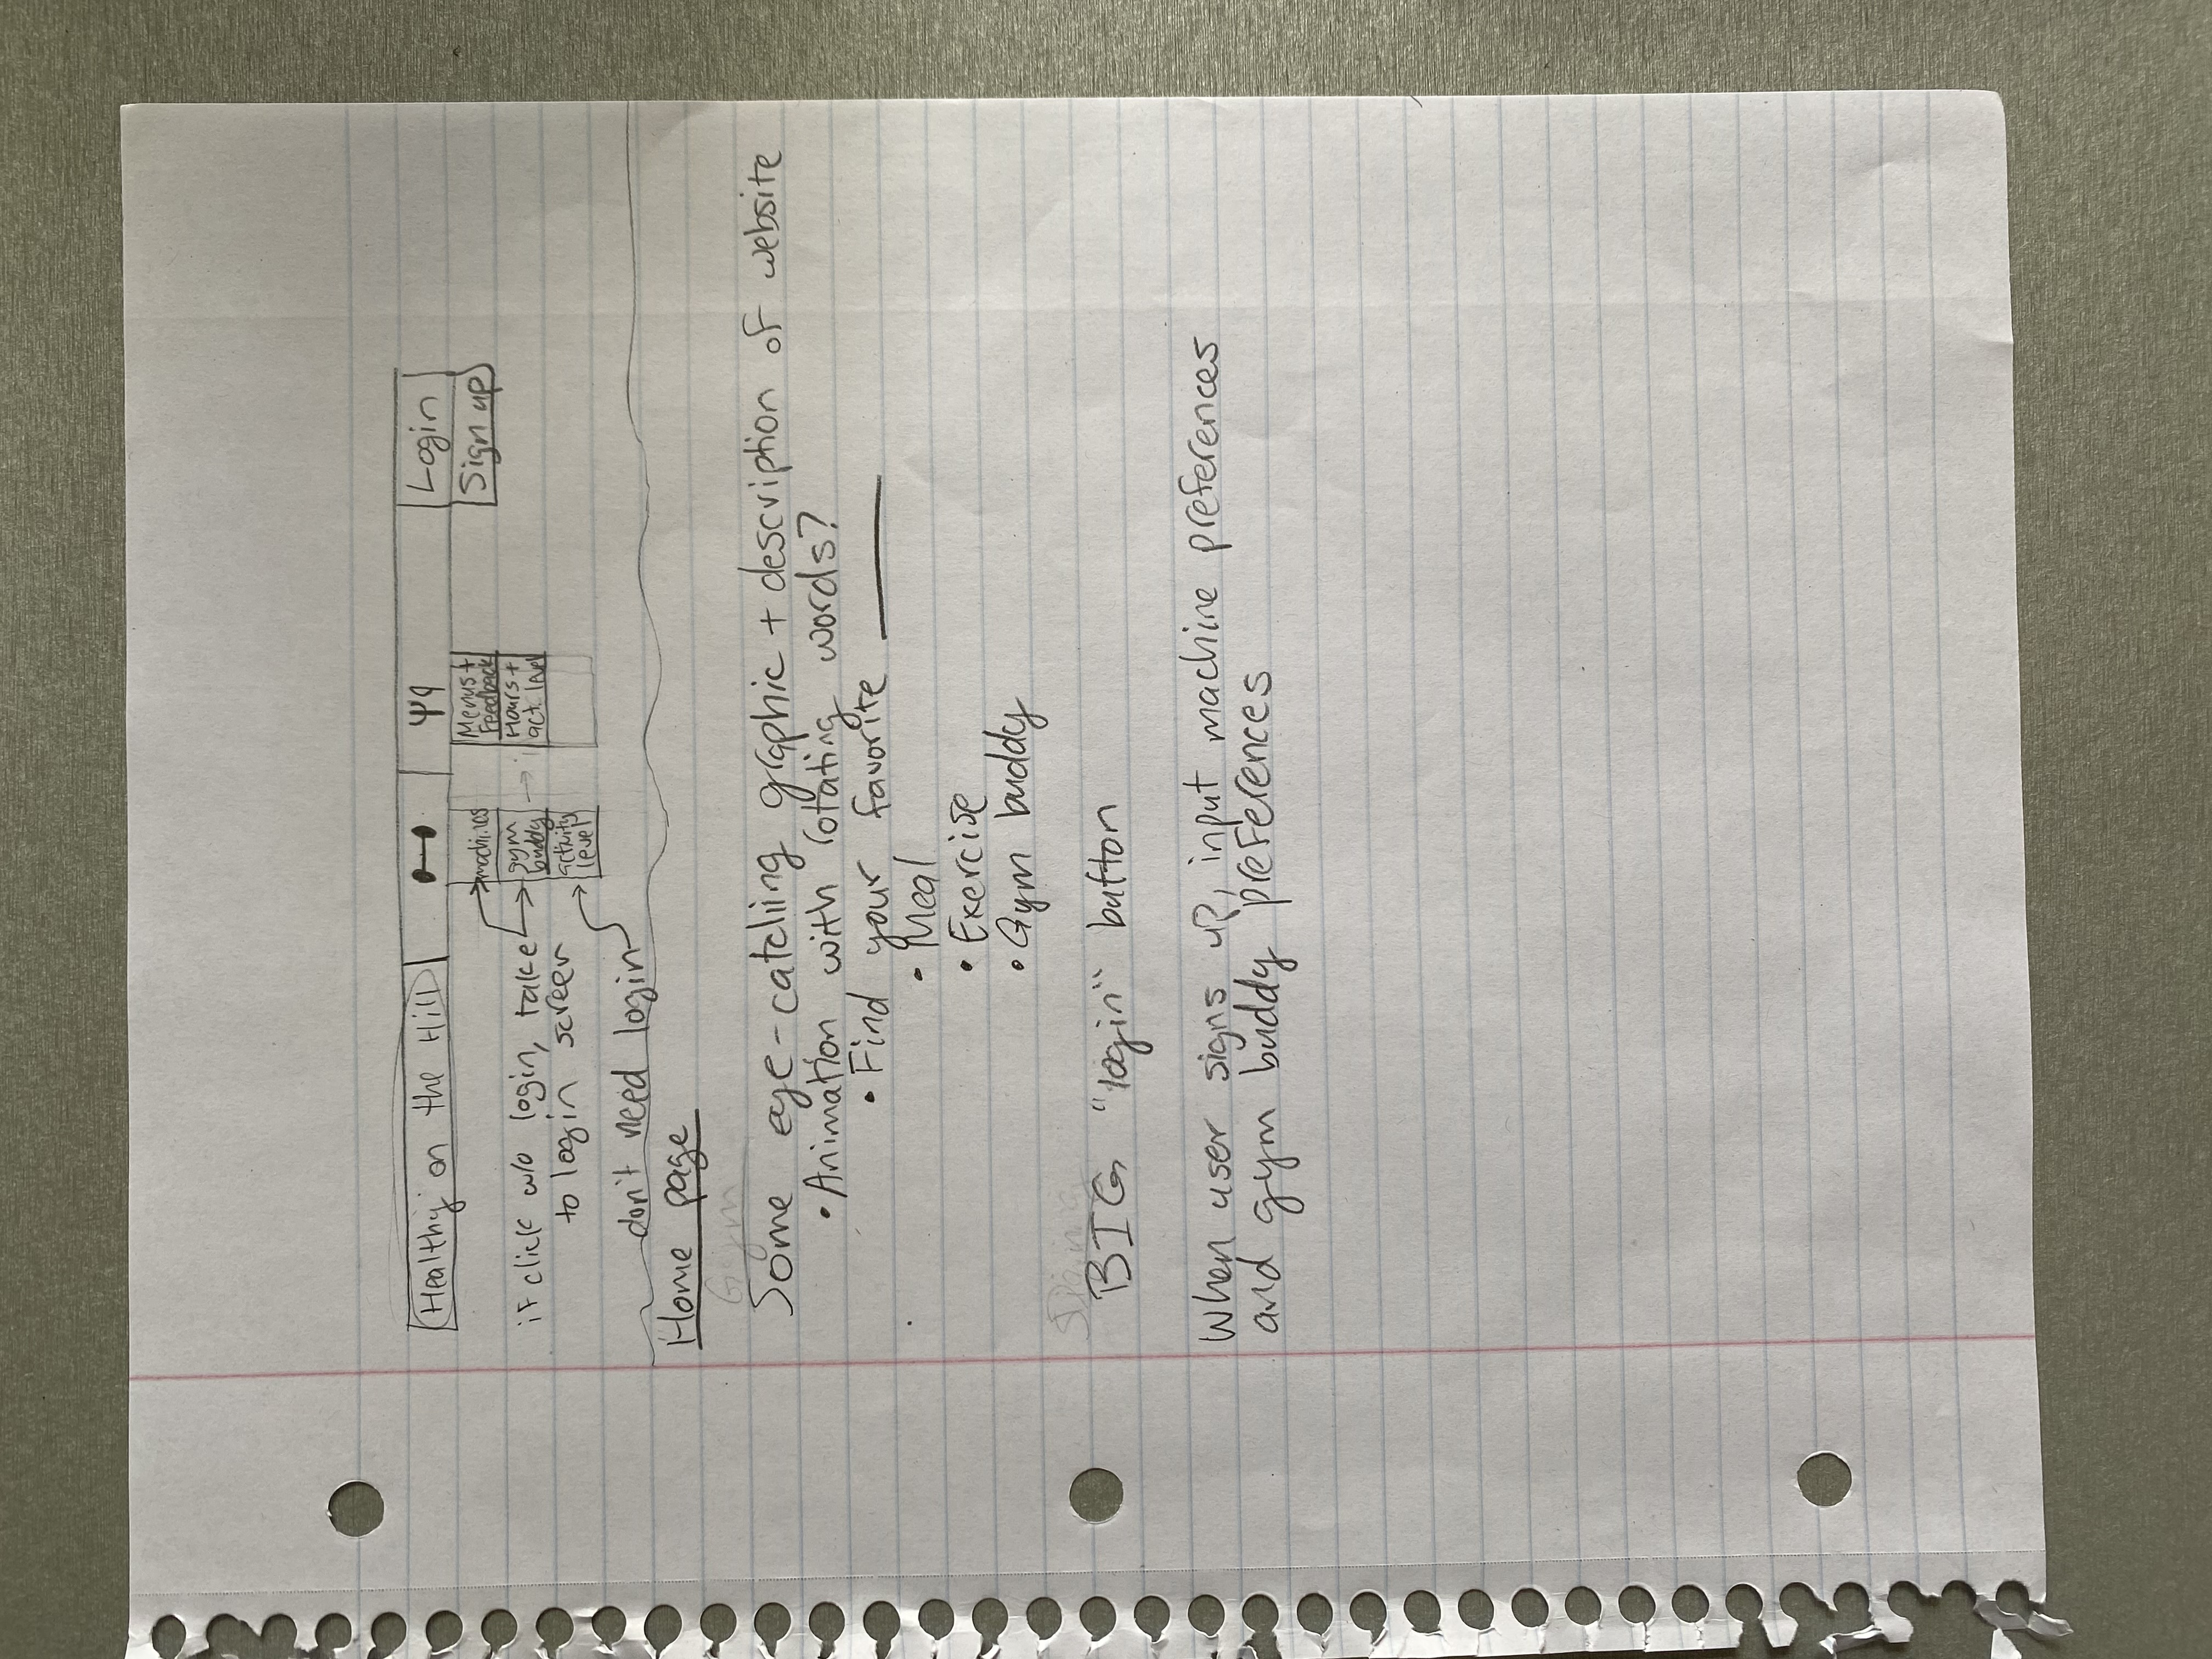 Healthy on the Hill
Login
Sign up
machines
gym
buddy
activity
level
Menus +
Feedback
Hours +
act. level
if click w/o login, take
to login screen
don't need login
Home page
Gym
Some eye-catching graphic + description of website
• Animation with rotating words?
• Find your favorite ______
• Meal
• Exercise
• Gym buddy
Dining
BIG "login" button
When user signs up, input machine preferences
and gym buddy preferences